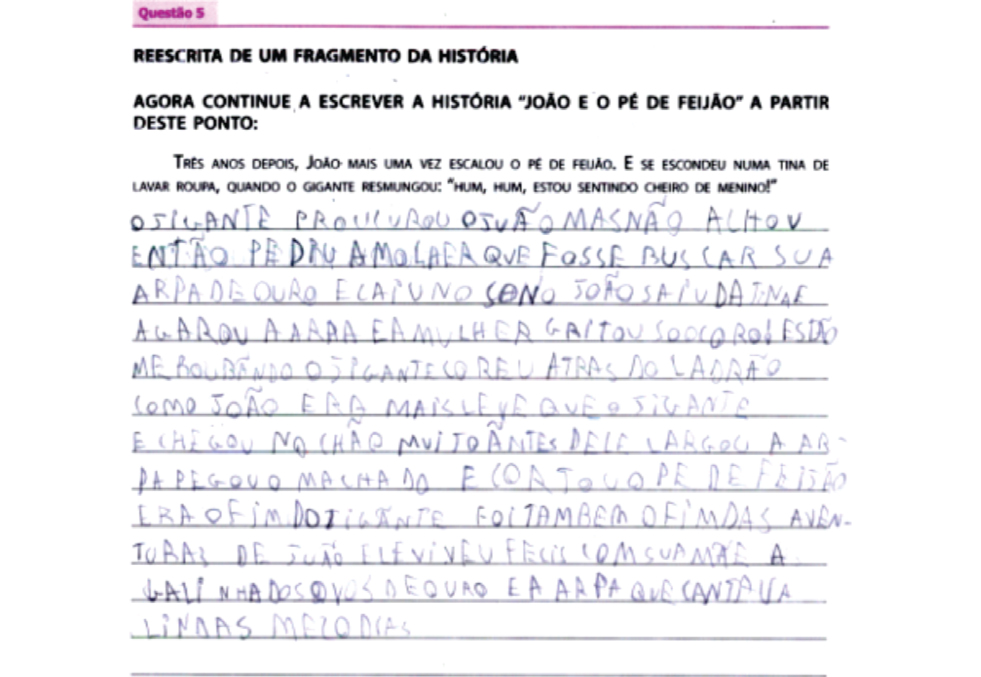 Questão 5
REESCRITA DE UM FRAGMENTO DA HISTÓRIA
AGORA CONTINUE A ESCREVER A HISTÓRIA "JOÃO E O PÉ DE FEIJÃO" A PARTIR
DESTE PONTO:
TRÊS ANOS DEPOIS, JOÃO MAIS UMA VEZ ESCALOU O PÉ DE FEIJÃO. E SE ESCONDEU NUMA TINA DE
LAVAR ROUPA, QUANDO O GIGANTE RESMUNGOU: "HUM, HUM, ESTOU SENTINDO CHEIRO DE MENINO!"
OJIGANTE PROUCUROU OJUÃO MASNÃO ACHOU
ENTÃO PEDIU AMOLHER QUE FOSSE BUSCAR SUA
ARPADEOURO ECAIUNO SONO JOÃOSAIUDATINAE
AGAROU AARPA EAMULHER GRITOU SOOCORO! ESTÃO
ME ROUBÃNDO OJIGANTECOREU ATRAS DO LADRÃO
COMO JOÃO ERA MAISLEVE QUEO JIGANTE
E CHEGOU NO CHÃO MUITOÃNTES DELE LARGOU A AR-
PA PEGOUO MACHADO E CORTOUO PE DE FEIJÃO
ERA OFIMDOJIGANTE FOITAMBEM OFIMDAS AVEN-
TURAS DE JUÃO ELEVIVEU FELIS COMSUAMÃE A
GALINHADOSOVOS DEOURO EA ARPA QUECANTAVA
LINDAS MELODIAS